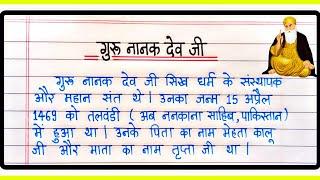 गुरू नानक देव जी
गुरू नानक देव जी सिख धर्म के संस्थापक
और महान संत थे। उनका जन्म 15 अप्रैल
1469 को तलवंडी ( अब ननकाना साहिब, पाकिस्तान)
में हुआ था। उनके पिता का नाम मेहता कालू
जी और माता का नाम तृप्ता जी था।